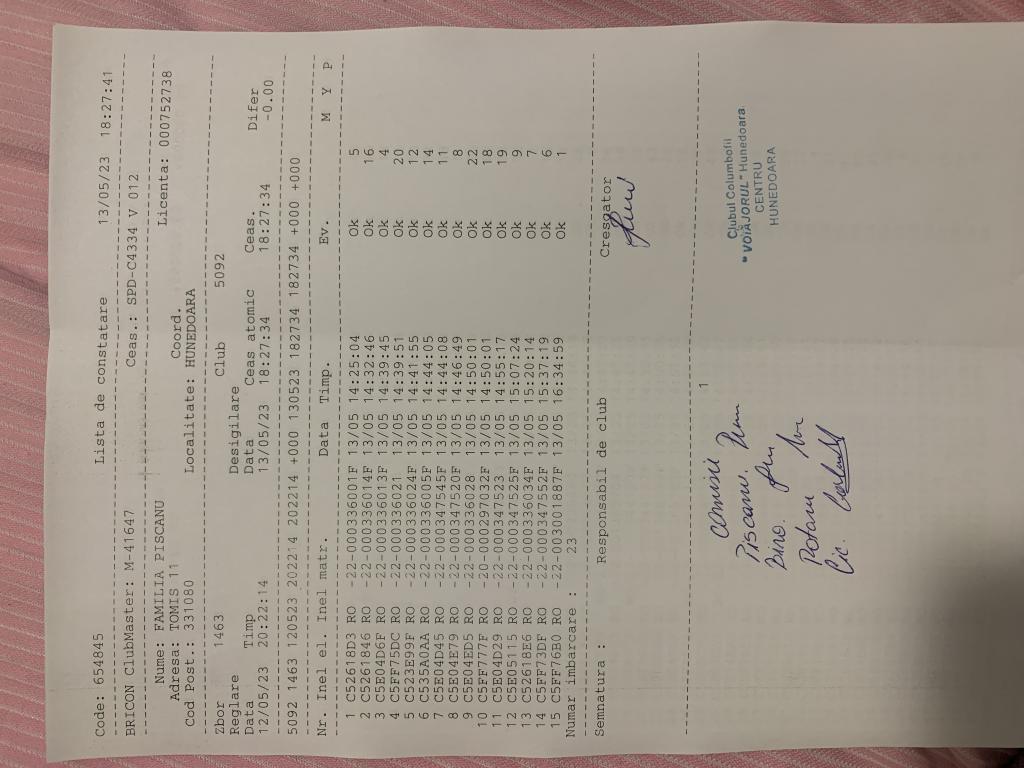 Code: 654845 Lista de constatare 13/05/23 18:27:41
BRICON ClubMaster: M-41647 Ceas.: SPD-C4334 V 012
Nume: FAMILIA PISCANU Coord.
Adresa: TOMIS 11 Licenta: 000752738
Cod Post.: 331080 Localitate: HUNEDOARA
Zbor 1463 Club 5092
Reglare Desigilare
Data Timp Data Ceas atomic Ceas. Difer
12/05/23 20:22:14 13/05/23 18:27:34 18:27:34 -0.00
5092 1463 120523 202214 202214 +000 130523 182734 182734 +000 +000
Nr. Inel el. Inel matr. Data Timp. Ev. M Y P
1 C52618D3 RO -22-000336001F 13/05 14:25:04 Ok 5
2 C5261846 RO -22-000336014F 13/05 14:32:46 Ok 16
3 C5E04D6F RO -22-000336013F 13/05 14:39:45 Ok 4
4 C5FF75DC RO -22-000336021 13/05 14:39:51 Ok 20
5 C523E99F RO -22-000336024F 13/05 14:41:55 Ok 12
6 C535A0AA RO -22-000336005F 13/05 14:44:05 Ok 14
7 C5E04D45 RO -22-000347545F 13/05 14:44:08 Ok 11
8 C5E04E79 RO -22-000347520F 13/05 14:46:49 Ok 8
9 C5E04ED5 RO -22-000336028 13/05 14:50:01 Ok 22
10 C5FF777F RO -20-000297032F 13/05 14:50:01 Ok 18
11 C5E04D29 RO -22-000347523 13/05 14:55:17 Ok 19
12 C5E05115 RO -22-000347525F 13/05 15:07:24 Ok 9
13 C52618E6 RO -22-000336034F 13/05 15:20:14 Ok 7
14 C5FF73DF RO -22-000347552F 13/05 15:37:19 Ok 6
15 C5FF76B0 RO -22-003001887F 13/05 16:34:59 Ok 1
Numar imbarcare : 23
Semnatura : Responsabil de club Crescator
1
Clubul Columbofil
"VOIAJORUL" Hunedoara
CENTRU
HUNEDOARA
Piscanu